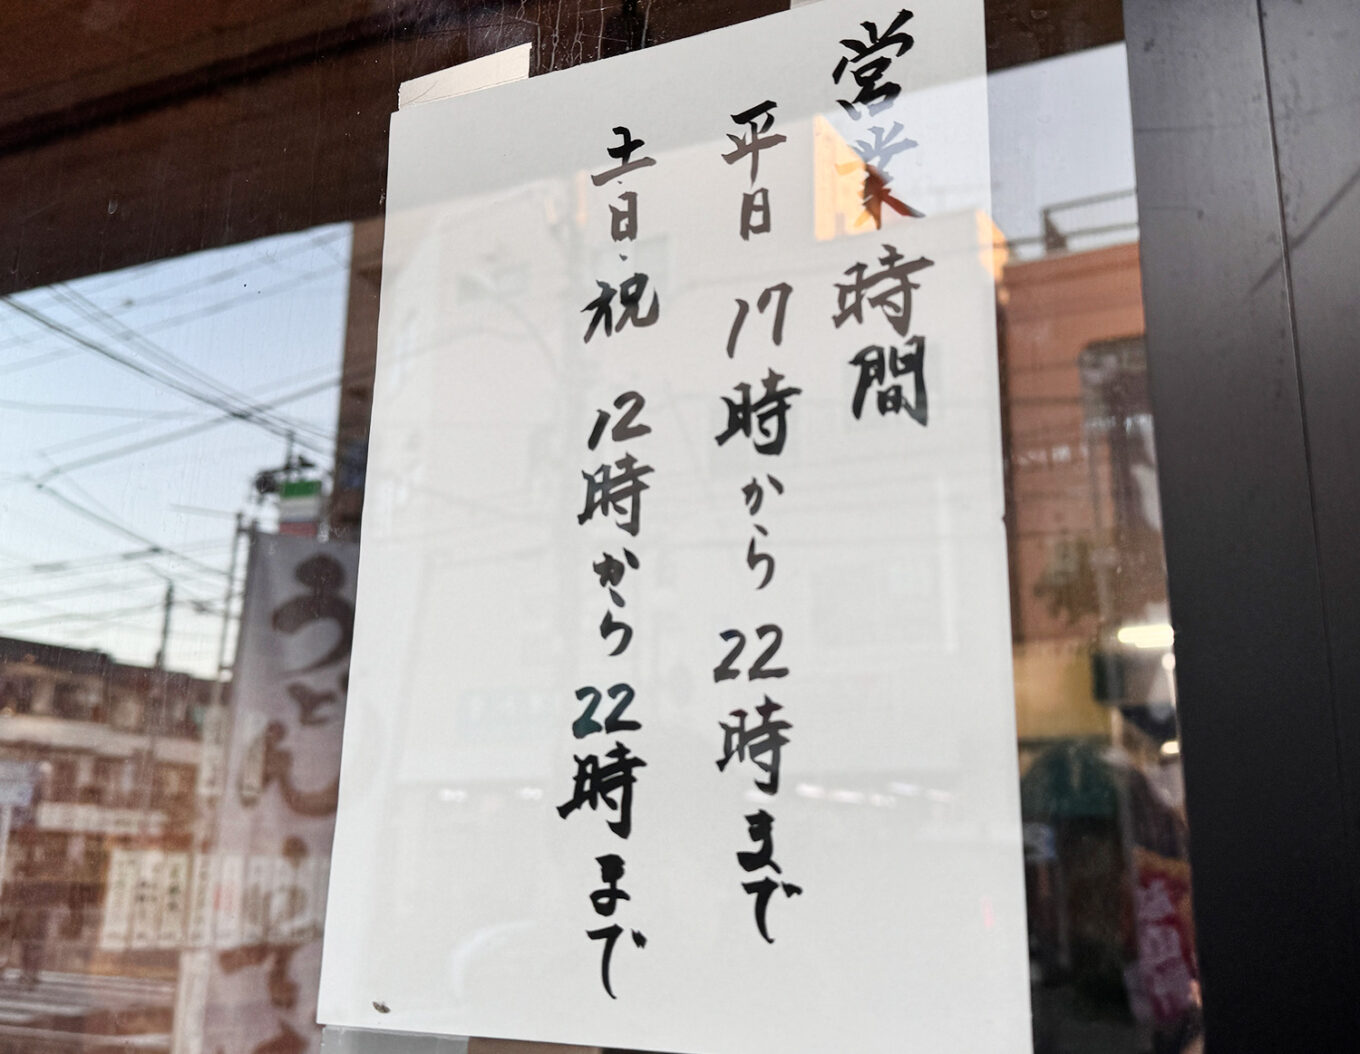 営業時間
平日 17時から22時まで
土・日・祝 12時から22時まで
うどん